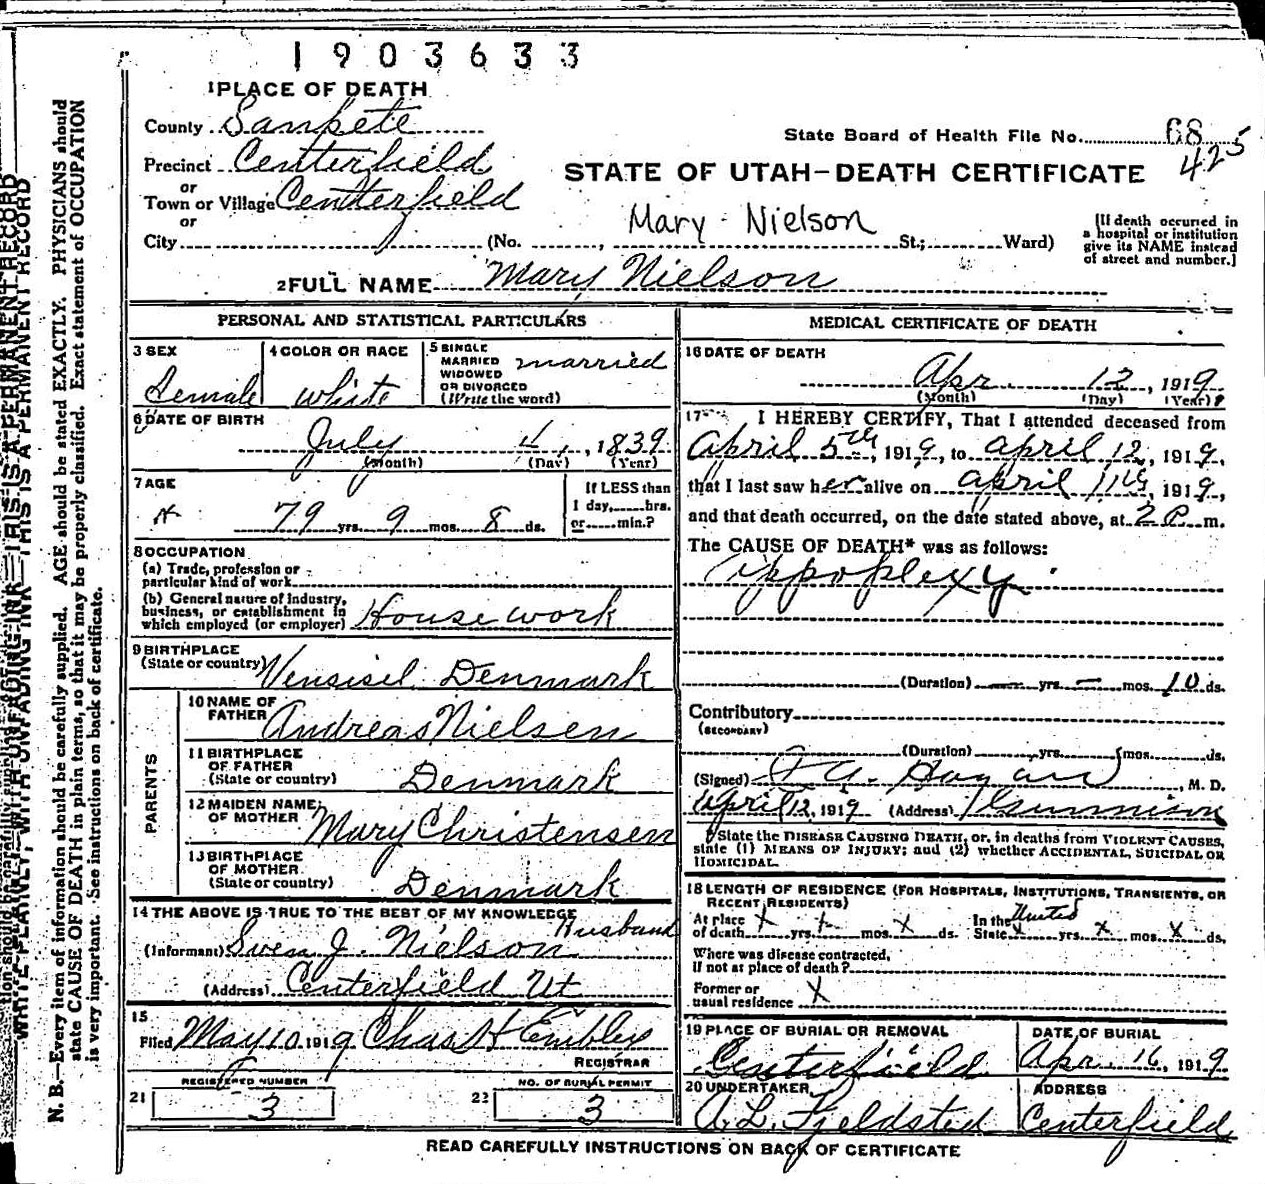 1903633
1 PLACE OF DEATH
County Sanpete
Precinct Centerfield
or
Town or Village Centterfield
or
City (No. , St.; Ward)
State Board of Health File No. 68
425
STATE OF UTAH—DEATH CERTIFICATE
Mary Nielson
[If death occurred in
a hospital or institution
give its NAME instead
of street and number.]
2 FULL NAME Mary Nielson
PERSONAL AND STATISTICAL PARTICULARS
3 SEX
Female
4 COLOR OR RACE
white
5 SINGLE
MARRIED
WIDOWED
OR DIVORCED
(Write the word)
married
6 DATE OF BIRTH
July 4, 1839
(Month) (Day) (Year)
7 AGE
79 yrs. 9 mos. 8 ds.
If LESS than
1 day, hrs.
or min.?
8 OCCUPATION
(a) Trade, profession or
particular kind of work
(b) General nature of industry,
business, or establishment in
which employed (or employer) House work
9 BIRTHPLACE
(State or country) Vensisil Denmark
PARENTS
10 NAME OF
FATHER Andreas Nielsen
11 BIRTHPLACE
OF FATHER
(State or country) Denmark
12 MAIDEN NAME
OF MOTHER Mary Christensen
13 BIRTHPLACE
OF MOTHER
(State or country) Denmark
14 THE ABOVE IS TRUE TO THE BEST OF MY KNOWLEDGE
Husband
(Informant) Swen J. Nielson
(Address) Centerfield Ut
15
Filed May 10 1919 Chas H Embley
REGISTRAR
REGISTERED NUMBER
21 3
NO. OF BURIAL PERMIT
22 3
MEDICAL CERTIFICATE OF DEATH
16 DATE OF DEATH
Apr 12, 1919
(Month) (Day) (Year)
17 I HEREBY CERTIFY, That I attended deceased from
April 5th, 1919, to April 12, 1919,
that I last saw her alive on April 11th, 1919,
and that death occurred, on the date stated above, at 2 P m.
The CAUSE OF DEATH* was as follows:
Appoplexy
(Duration) — yrs. — mos. 10 ds.
Contributory
(SECONDARY)
(Duration) yrs. mos. ds.
(Signed) , M. D.
April 12, 1919 (Address) Gunnison
*State the DISEASE CAUSING DEATH, or, in deaths from VIOLENT CAUSES,
state (1) MEANS OF INJURY; and (2) whether ACCIDENTAL, SUICIDAL OR
HOMICIDAL.
18 LENGTH OF RESIDENCE (FOR HOSPITALS, INSTITUTIONS, TRANSIENTS, OR
RECENT RESIDENTS)
At place
of death x yrs. x mos. x ds.
In the United
State x yrs. x mos. x ds.
Where was disease contracted,
If not at place of death?
Former or
usual residence X
19 PLACE OF BURIAL OR REMOVAL
Centerfield
DATE OF BURIAL
Apr 14, 1919
20 UNDERTAKER
A. L. Fjeldsted
ADDRESS
Centerfield
READ CAREFULLY INSTRUCTIONS ON BACK OF CERTIFICATE
WRITE PLAINLY, WITH UNFADING INK—THIS IS A PERMANENT RECORD
N. B.—Every item of information should be carefully supplied. AGE should be stated EXACTLY. PHYSICIANS should
state CAUSE OF DEATH in plain terms, so that it may be properly classified. Exact statement of OCCUPATION
is very important. See instructions on back of certificate.